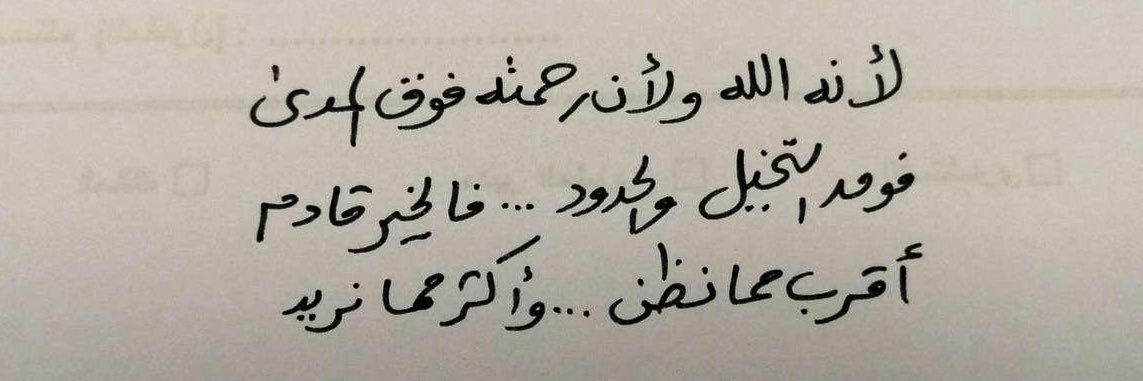 لأنه الله ولأن رحمته فوق المدى
فوق التخيل والحدود ... فالخير قادم
أقرب مما نظن ... وأكثر مما نريد